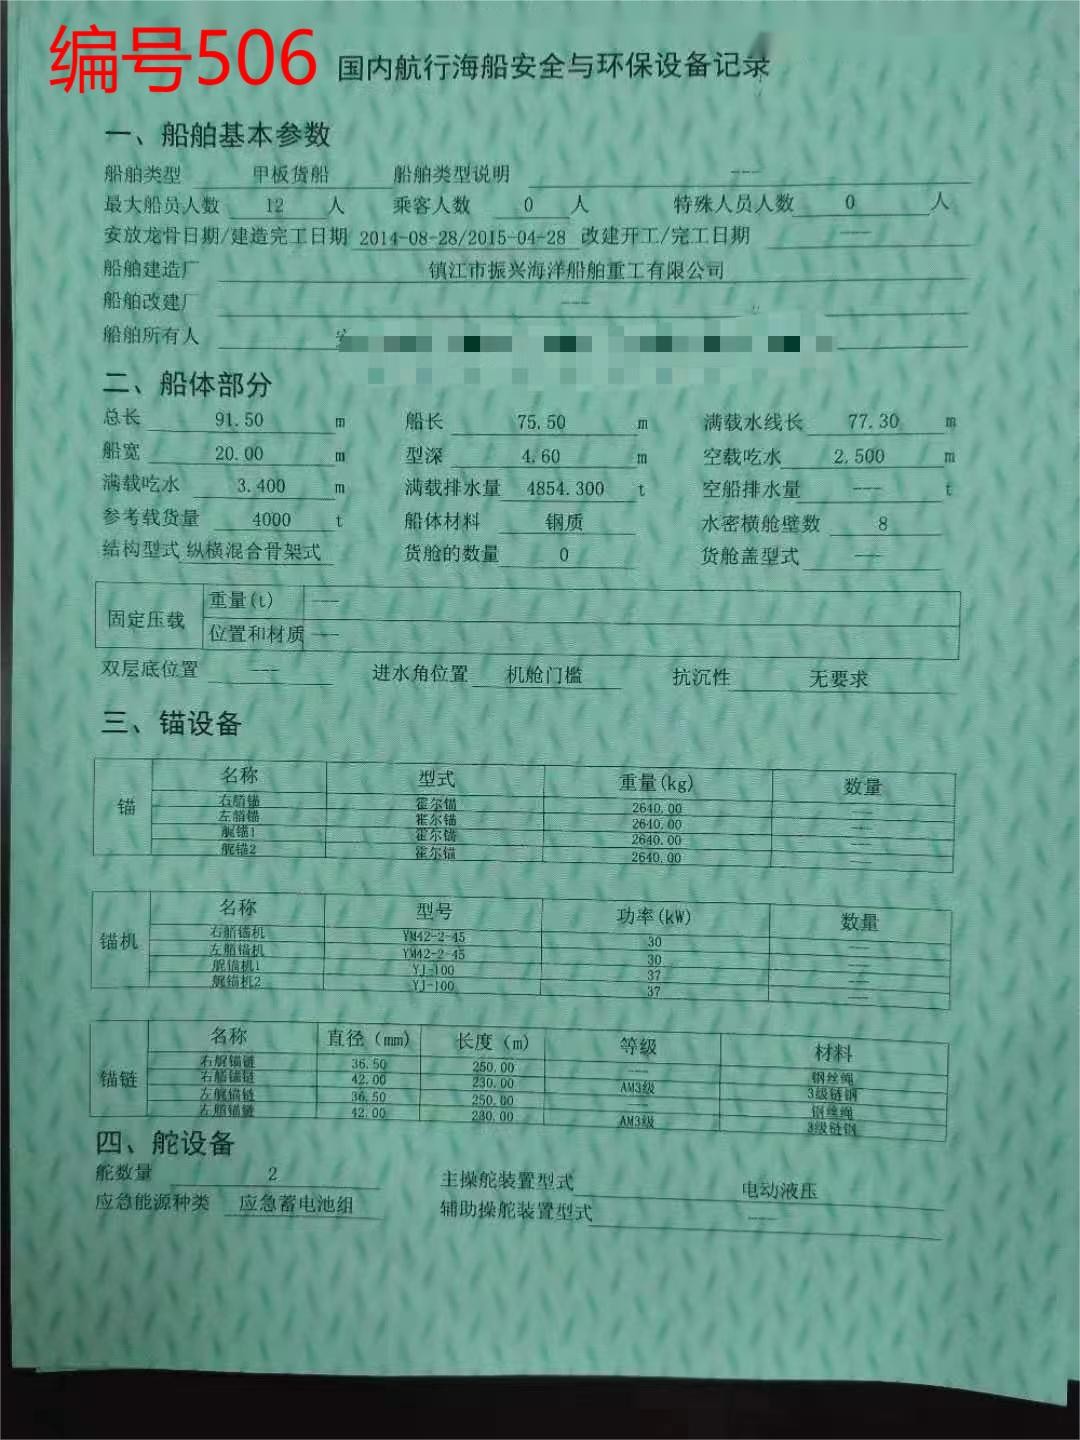 编号506
国内航行海船安全与环保设备记录
一、船舶基本参数
船舶类型 甲板货船 船舶类型说明 ---
最大船员人数 12 人 乘客人数 0 人 特殊人员人数 0 人
安放龙骨日期/建造完工日期 2014-08-28/2015-04-28 改建开工/完工日期 ---
船舶建造厂 镇江市振兴海洋船舶重工有限公司
船舶改建厂 ---
船舶所有人
二、船体部分
总长 91.50 m 船长 75.50 m 满载水线长 77.30 m
船宽 20.00 m 型深 4.60 m 空载吃水 2.500 m
满载吃水 3.400 m 满载排水量 4854.300 t 空船排水量 --- t
参考载货量 4000 t 船体材料 钢质 水密横舱壁数 8
结构型式 纵横混合骨架式 货舱的数量 0 货舱盖型式 ---
固定压载 重量(t) ---
位置和材质 ---
双层底位置 --- 进水角位置 机舱门槛 抗沉性 无要求
三、锚设备
锚 名称 型式 重量(kg) 数量
右艏锚 霍尔锚 2640.00 ---
左艏锚 霍尔锚 2640.00 ---
艉锚1 霍尔锚 2640.00 ---
艉锚2 霍尔锚 2640.00 ---
锚机 名称 型号 功率(kW) 数量
右艏锚机 YM42-2-45 30 ---
左艏锚机 YM42-2-45 30 ---
艉锚机1 YJ-100 37 ---
艉锚机2 YJ-100 37 ---
锚链 名称 直径 (mm) 长度 (m) 等级 材料
右艉锚链 36.50 250.00 --- 钢丝绳
右艏锚链 42.00 230.00 AM3级 3级链钢
左艉锚链 36.50 250.00 --- 钢丝绳
左艏锚链 42.00 230.00 AM3级 3级链钢
四、舵设备
舵数量 2 主操舵装置型式 电动液压
应急能源种类 应急蓄电池组 辅助操舵装置型式 ---